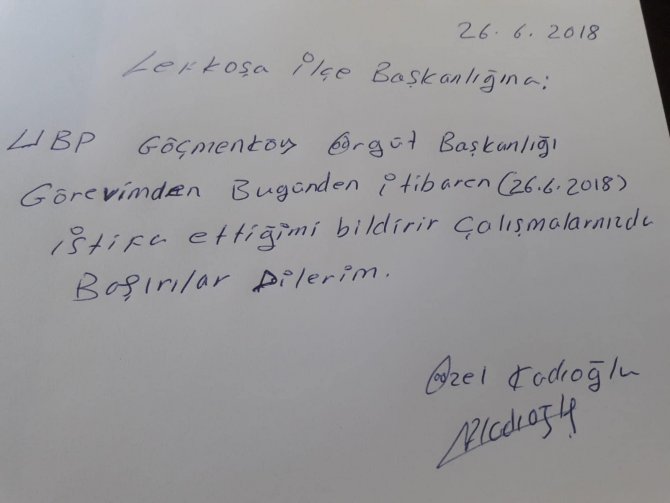 26.6.2018
Lefkoşa İlçe Başkanlığına:
UBP Göçmenköy Örgüt Başkanlığı
Görevimden Bugünden itibaren (26.6.2018)
istifa ettiğimi bildirir Çalışmalarnızda
Başırılar Dilerim.
Özel Kadıoğlu